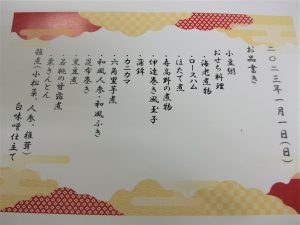 二〇二三年一月一日(日)
お品書き
小豆粥
おせち料理
・海老煮物
・ロースハム
・ほたて煮
・高野の煮物
・伊達巻き風玉子
・蒲鉾
・カニカマ
・六角里芋煮
・和風人参・和風ふき
・昆布巻き
・黒豆煮
・若桃の甘露煮
・栗きんとん
雑煮(小松菜、人参、椎茸)
白味噌仕立て